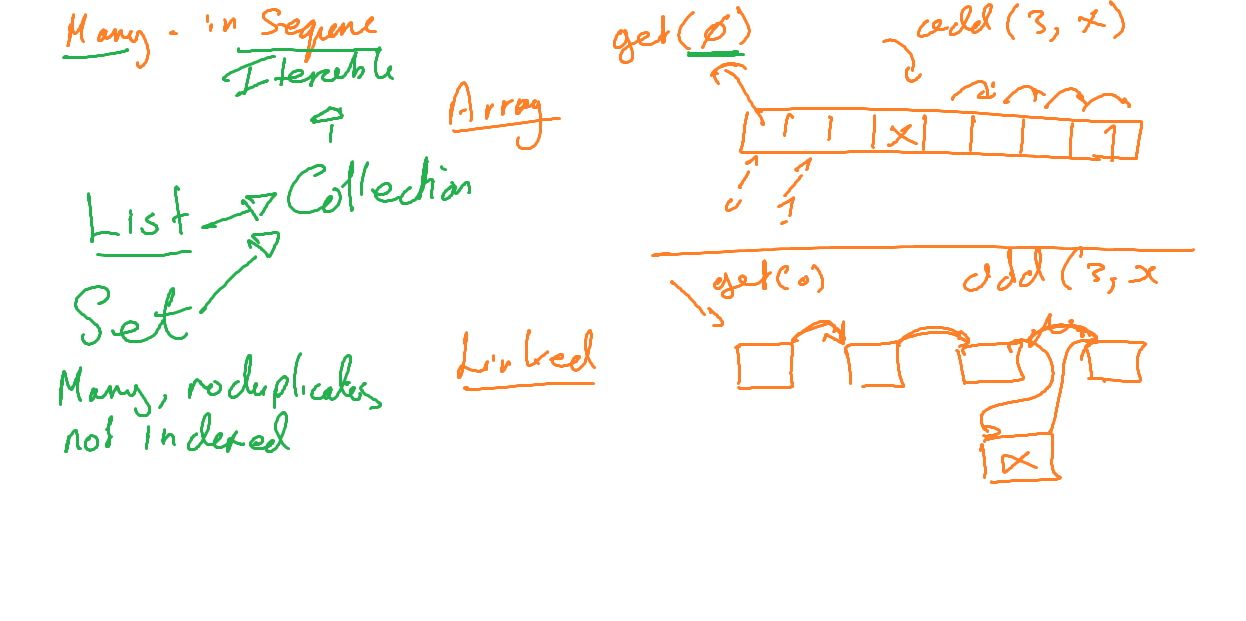 Many - in Sequence
Iterable
Collection
List
Set
Many, no duplicates
not indexed
Array
get(0)
add(3, x)
x
0
1
Linked
get(0)
add(3, x
x